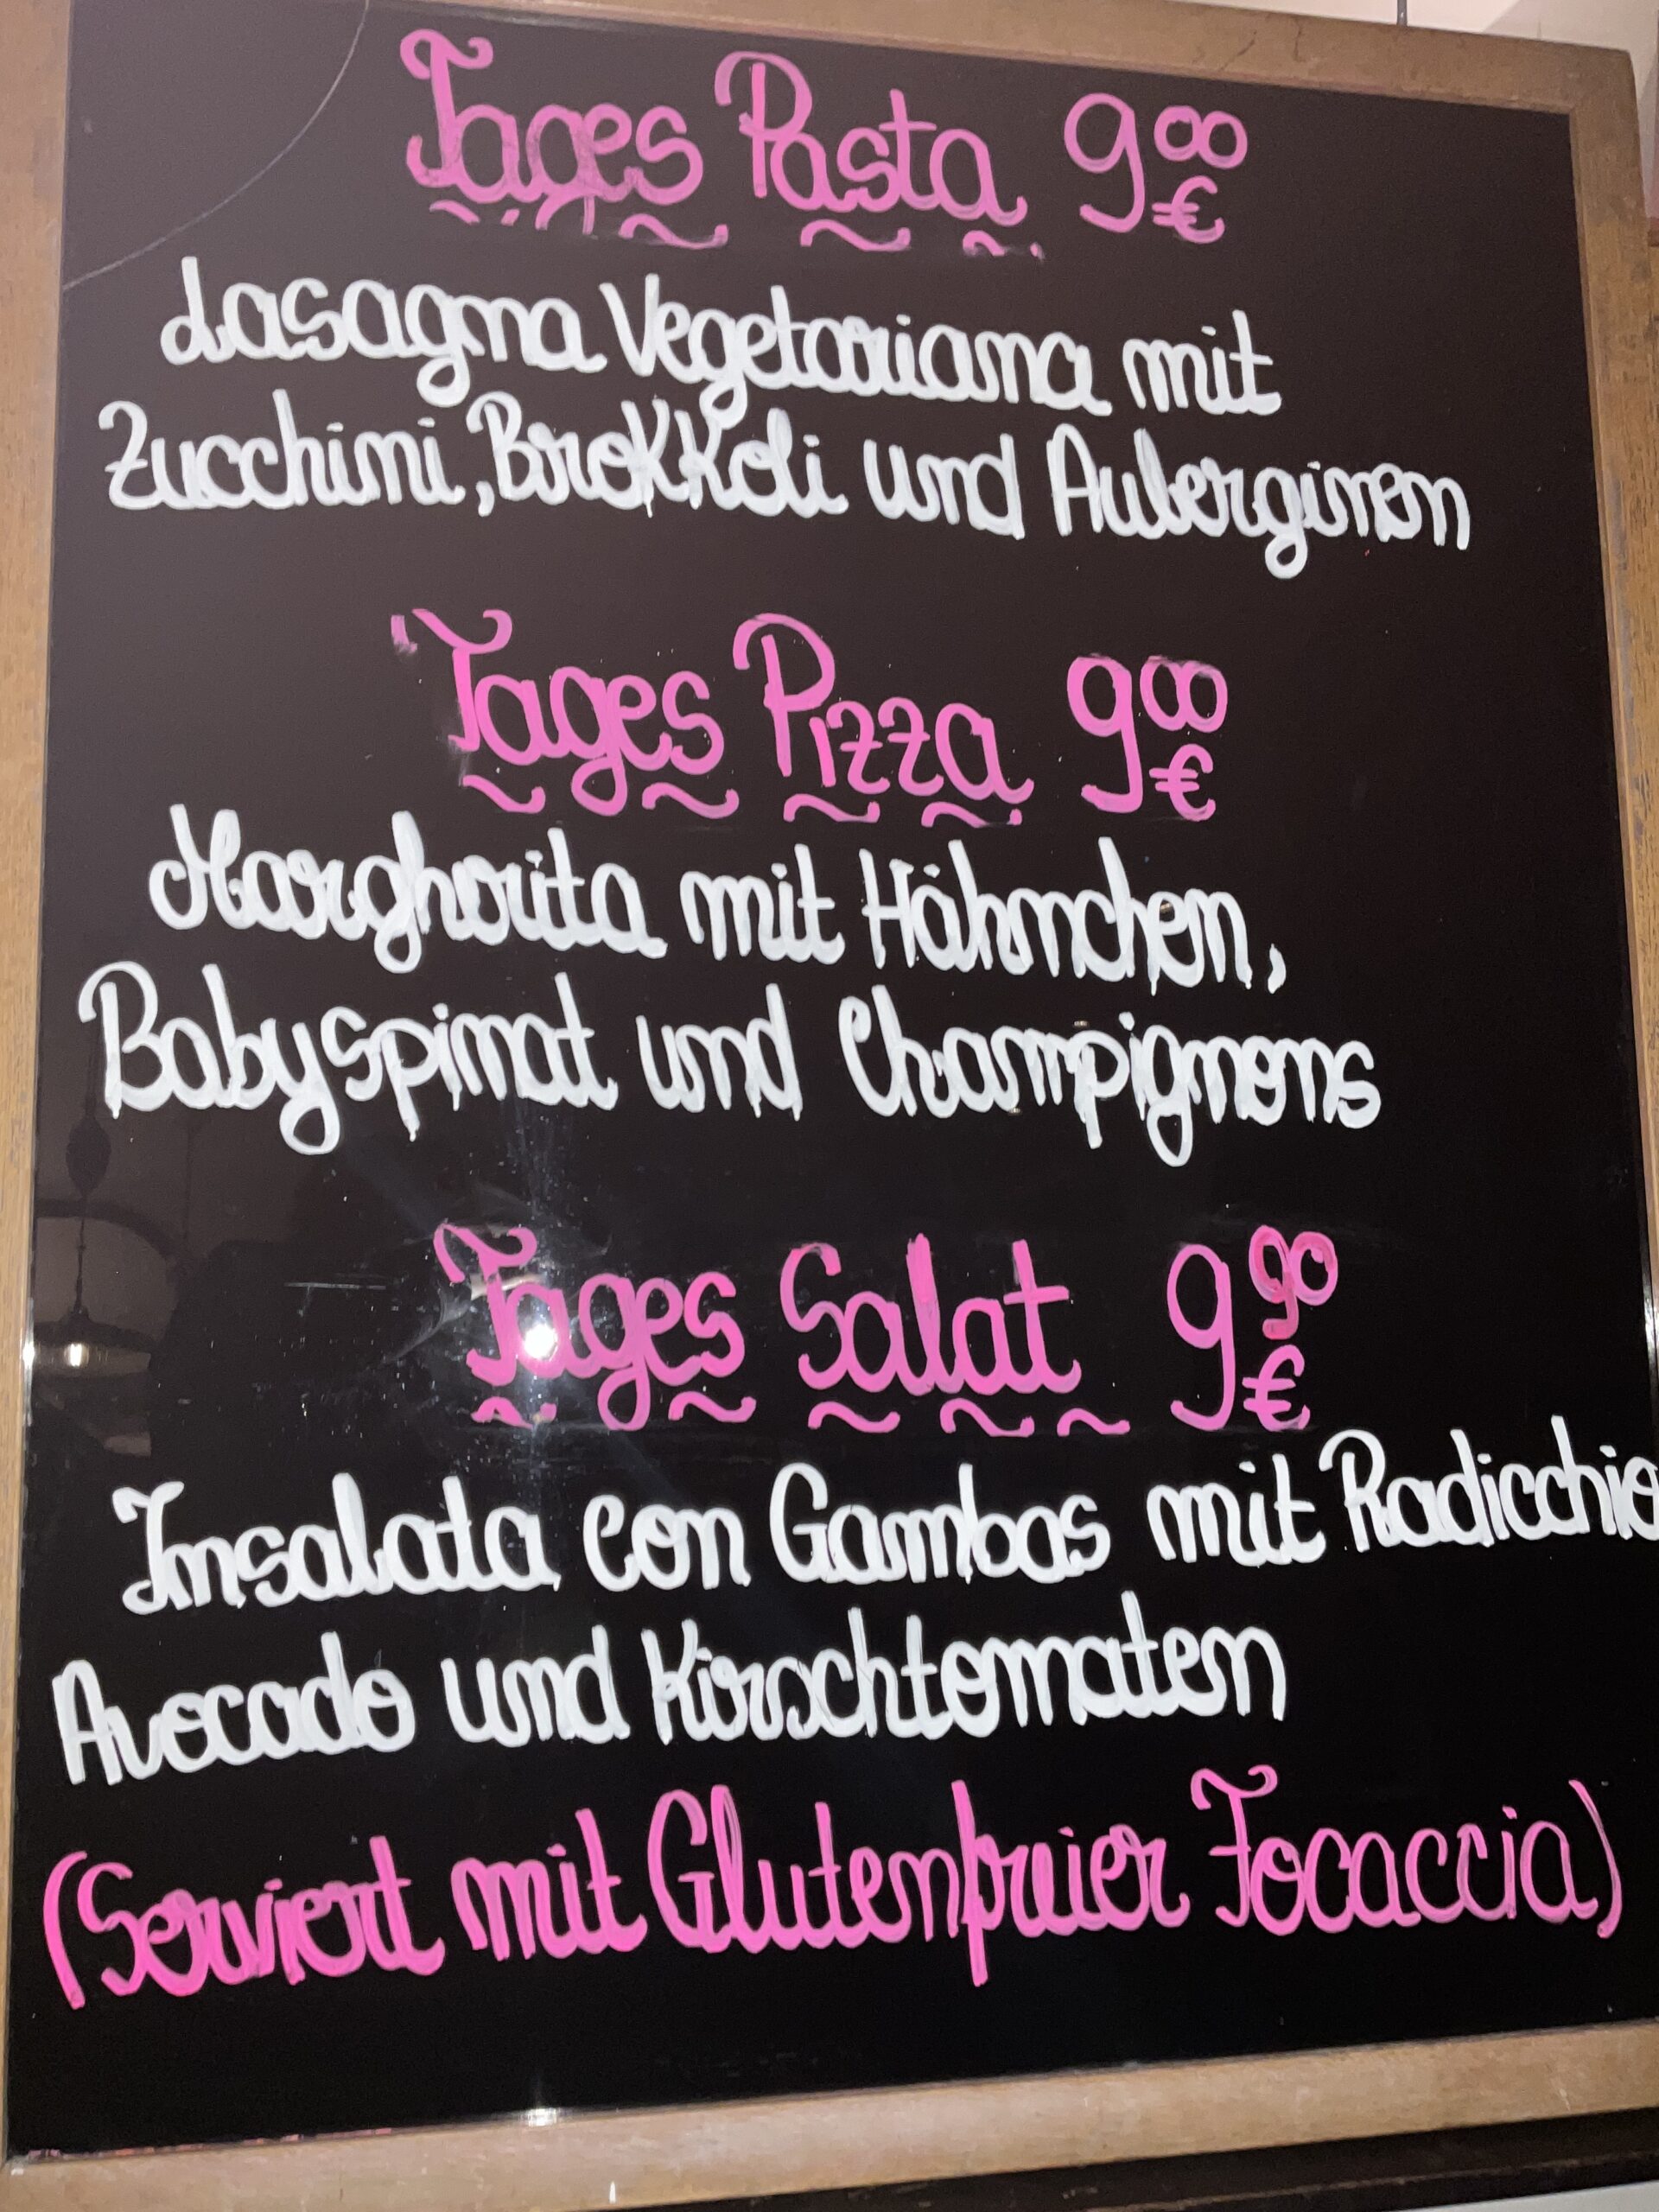 Tages Pasta 9⁰⁰ €
Lasagna Vegetariana mit
Zucchini, Brokkoli und Auberginen
Tages Pizza 9⁰⁰ €
Margherita mit Hähnchen,
Babyspinat und Champignons
Tages Salat 9⁹⁰ €
Insalata con Gambas mit Radicchio
Avocado und Kirschtomaten
(Serviert mit Glutenfreier Focaccia)